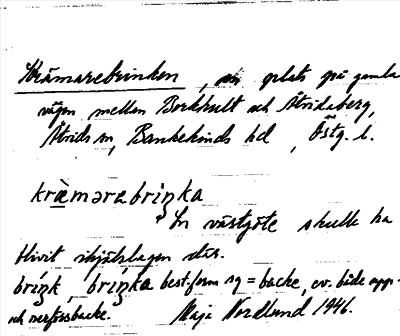 Krämarebrinken, en plats på gamla
vägen mellan Borkhult och Åtvidaberg,
Åtvids sn, Bankekinds hd, Östg. l.
kràmərebriŋka
En västgöte skulle ha
blivit ihjälslagen där.
briŋk, briŋka best. form sg = backe, ev. både upp-
och nerförsbacke. Maja Nordlund 1946.